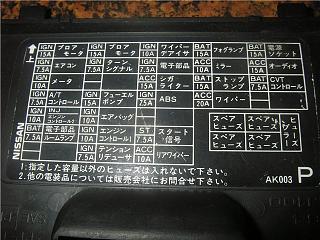 IGN 15A ブロア モータ IGN 15A ブロア モータ IGN 10A ワイパー デアイサ BAT 15A フォグランプ BAT 15A 電源 ソケット
IGN 7.5A エアコン IGN 7.5A ターン シグナル IGN 10A 電子部品 ACC 10A ミラー ACC 15A オーディオ
IGN 10A メータ ACC 15A シガ ライター BAT 15A ストップ ランプ BAT 7.5A CVT コントロール
IGN 7.5A A/T コントロール IGN 15A フューエル ポンプ ABS ACC 20A ワイパー
IGN 10A エンジン コントロール1 IGN 10A エアバッグ スペア ヒューズ スペア ヒューズ ヒューズ
BAT 7.5A 電子部品 ルームランプ IGN 10A エンジン コントロール ST 7.5A スタート 信号 スペア ヒューズ スペア ヒューズ
IGN 10A テンション リデューサ IGN 10A リアワイパー
NISSAN
1.指定した容量以外のヒューズは入れないで下さい。
2.他の電装品については販売会社にお問合せ下さい。
AK003
P